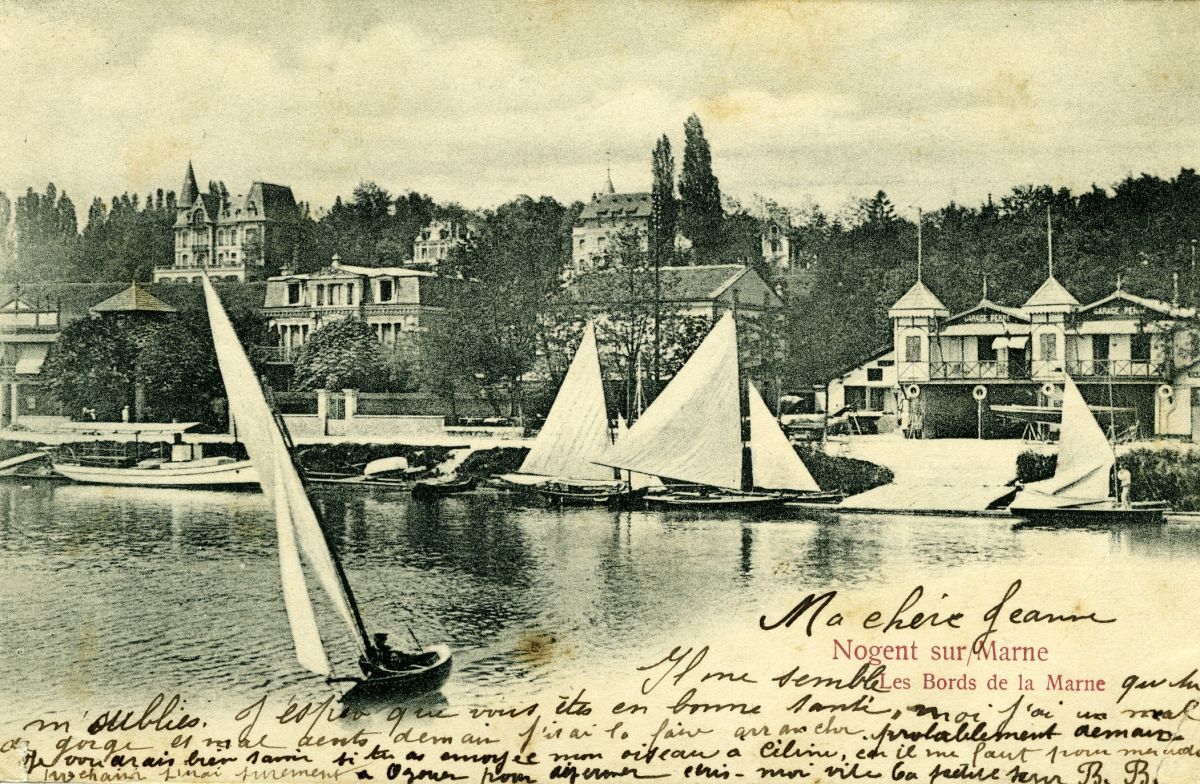 GARAGE PERN
GARAGE PERN
Ma chère Jeanne
Nogent sur Marne
Il me semble que tu
Les Bords de la Marne
m'oublies. J'espère que vous êtes en bonne santé, moi j'ai un mal
de gorge et mal aux dents demain j'irai la faire arracher probablement demain.
Je voudrais bien savoir si tu as envoyée mon oiseau a car il me faut pour mercredi
prochain j'irai surement a Ozouer pour écris-moi vite ta petite sœur B. B.